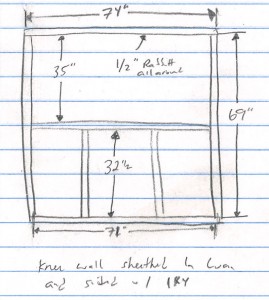 74"
35"
1/2" Rabbit
all around
69"
32 1/2
71"
Knee wall sheathed in Luan
and sided w/ 1x4